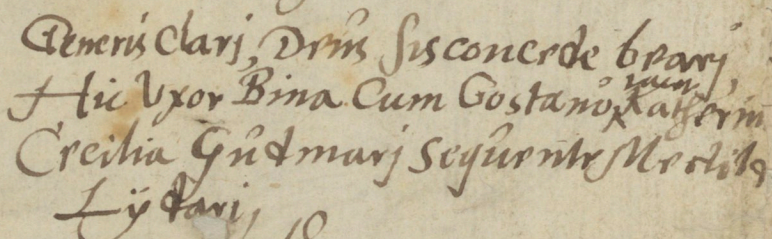 Generis Clarj, Deus sis concede bearj,
Hic Vxor Bina Cum Gostano Katherin
Cecilia Gudmarj Sequente Mectild
Lydarj,